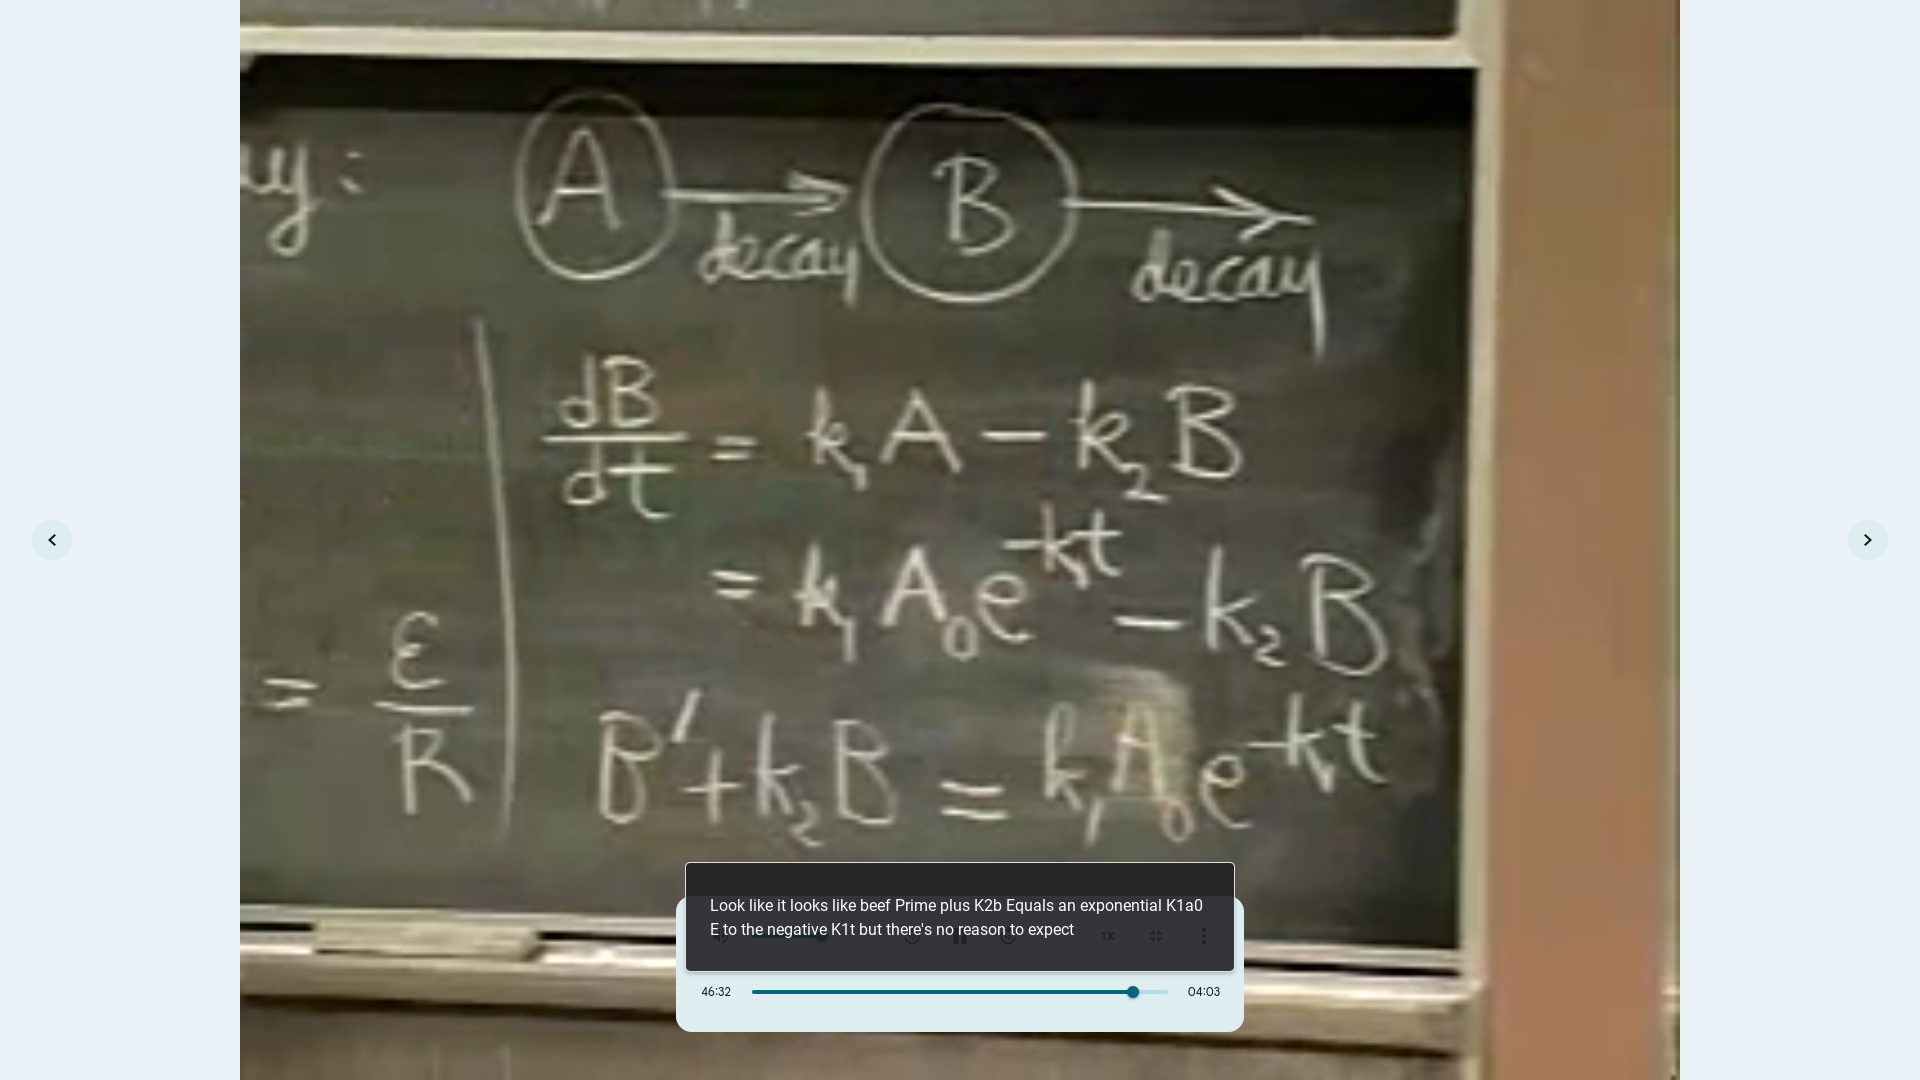 y:
A
decay
B
decay
dB/dt = k₁A − k₂B
= k₁A₀e^−k₁t − k₂B
= ε/R
B′ + k₂B = k₁A₀e^−k₁t
Look like it looks like beef Prime plus K2b Equals an exponential K1a0
E to the negative K1t but there's no reason to expect
1X
46:32
04:03